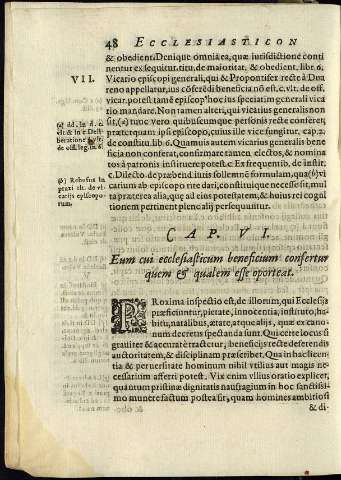 48 ECCLESIASTICON
& obedient. Denique omnia ea, quæ iurisdictione conti
nentur exsequitur. titu. de maioritat. & obedient. lib. 6.
VII.
Vicario episcopi generali, qui & Propontifex recte à Dua
reno appellatur, ius cōferēdi beneficia nō est. c. vlt. de off.
vicar. potest tamē episcopꝰ hoc ius speciatim generali vica
rio mandare. Non tamen alteri, qui vicarius generalis non
sit, (a) nunc vero quibuscumque personis recte conferet,
præterquam ipsi episcopo, cuius ille vice fungitur, cap. 2.
de constitu. lib. 6. Quamuis autem vicarius generalis bene
ficia non conferat, confirmare tamen electos, & nomina
tos à patronis instituere potest. c. Ex frequentib. de instit.
c. Dilecto. de præbend. iuris sollemnē formulam, qua (b) vi
carium ab episcopo rite dari, constituique necesse sit, mul
ta præterea alia, quæ ad eius potestatem, & huius rei cogni
tionem pertinent plene alij persequuntur.
(a) ad. in d. c.
vlt & in c Deli
beratione just.
de off. leg. in 6.
(b) Robusus in
praxi tit. de vi
carijs episcopo-
rum.
CAP. VI.
Eum cui ecclesiasticum beneficium confertur
quem & qualem esse oporteat.
PRoxima inspectio est, de illorum, qui Ecclesiæ
præficiuntur, pietate, innocentia, instituto, ha
bitu, natalibus, ætate, atque alijs, quæ ex cano-
num decretis spectanda sunt. Qui certe locus si
grauiter & accurate tractetur, beneficijs recte deferendis
auctoritatem, & disciplinam præscribet. Qua in hac licen-
tia & peruersitate hominum nihil vtilius aut magis ne-
cessarium afferri potest. Vix enim vllius oratio explicet,
quantum pristinæ dignitatis naufragium in hoc sanctissi
mo munere factum postea sit, quam homines ambitiosi
& di-